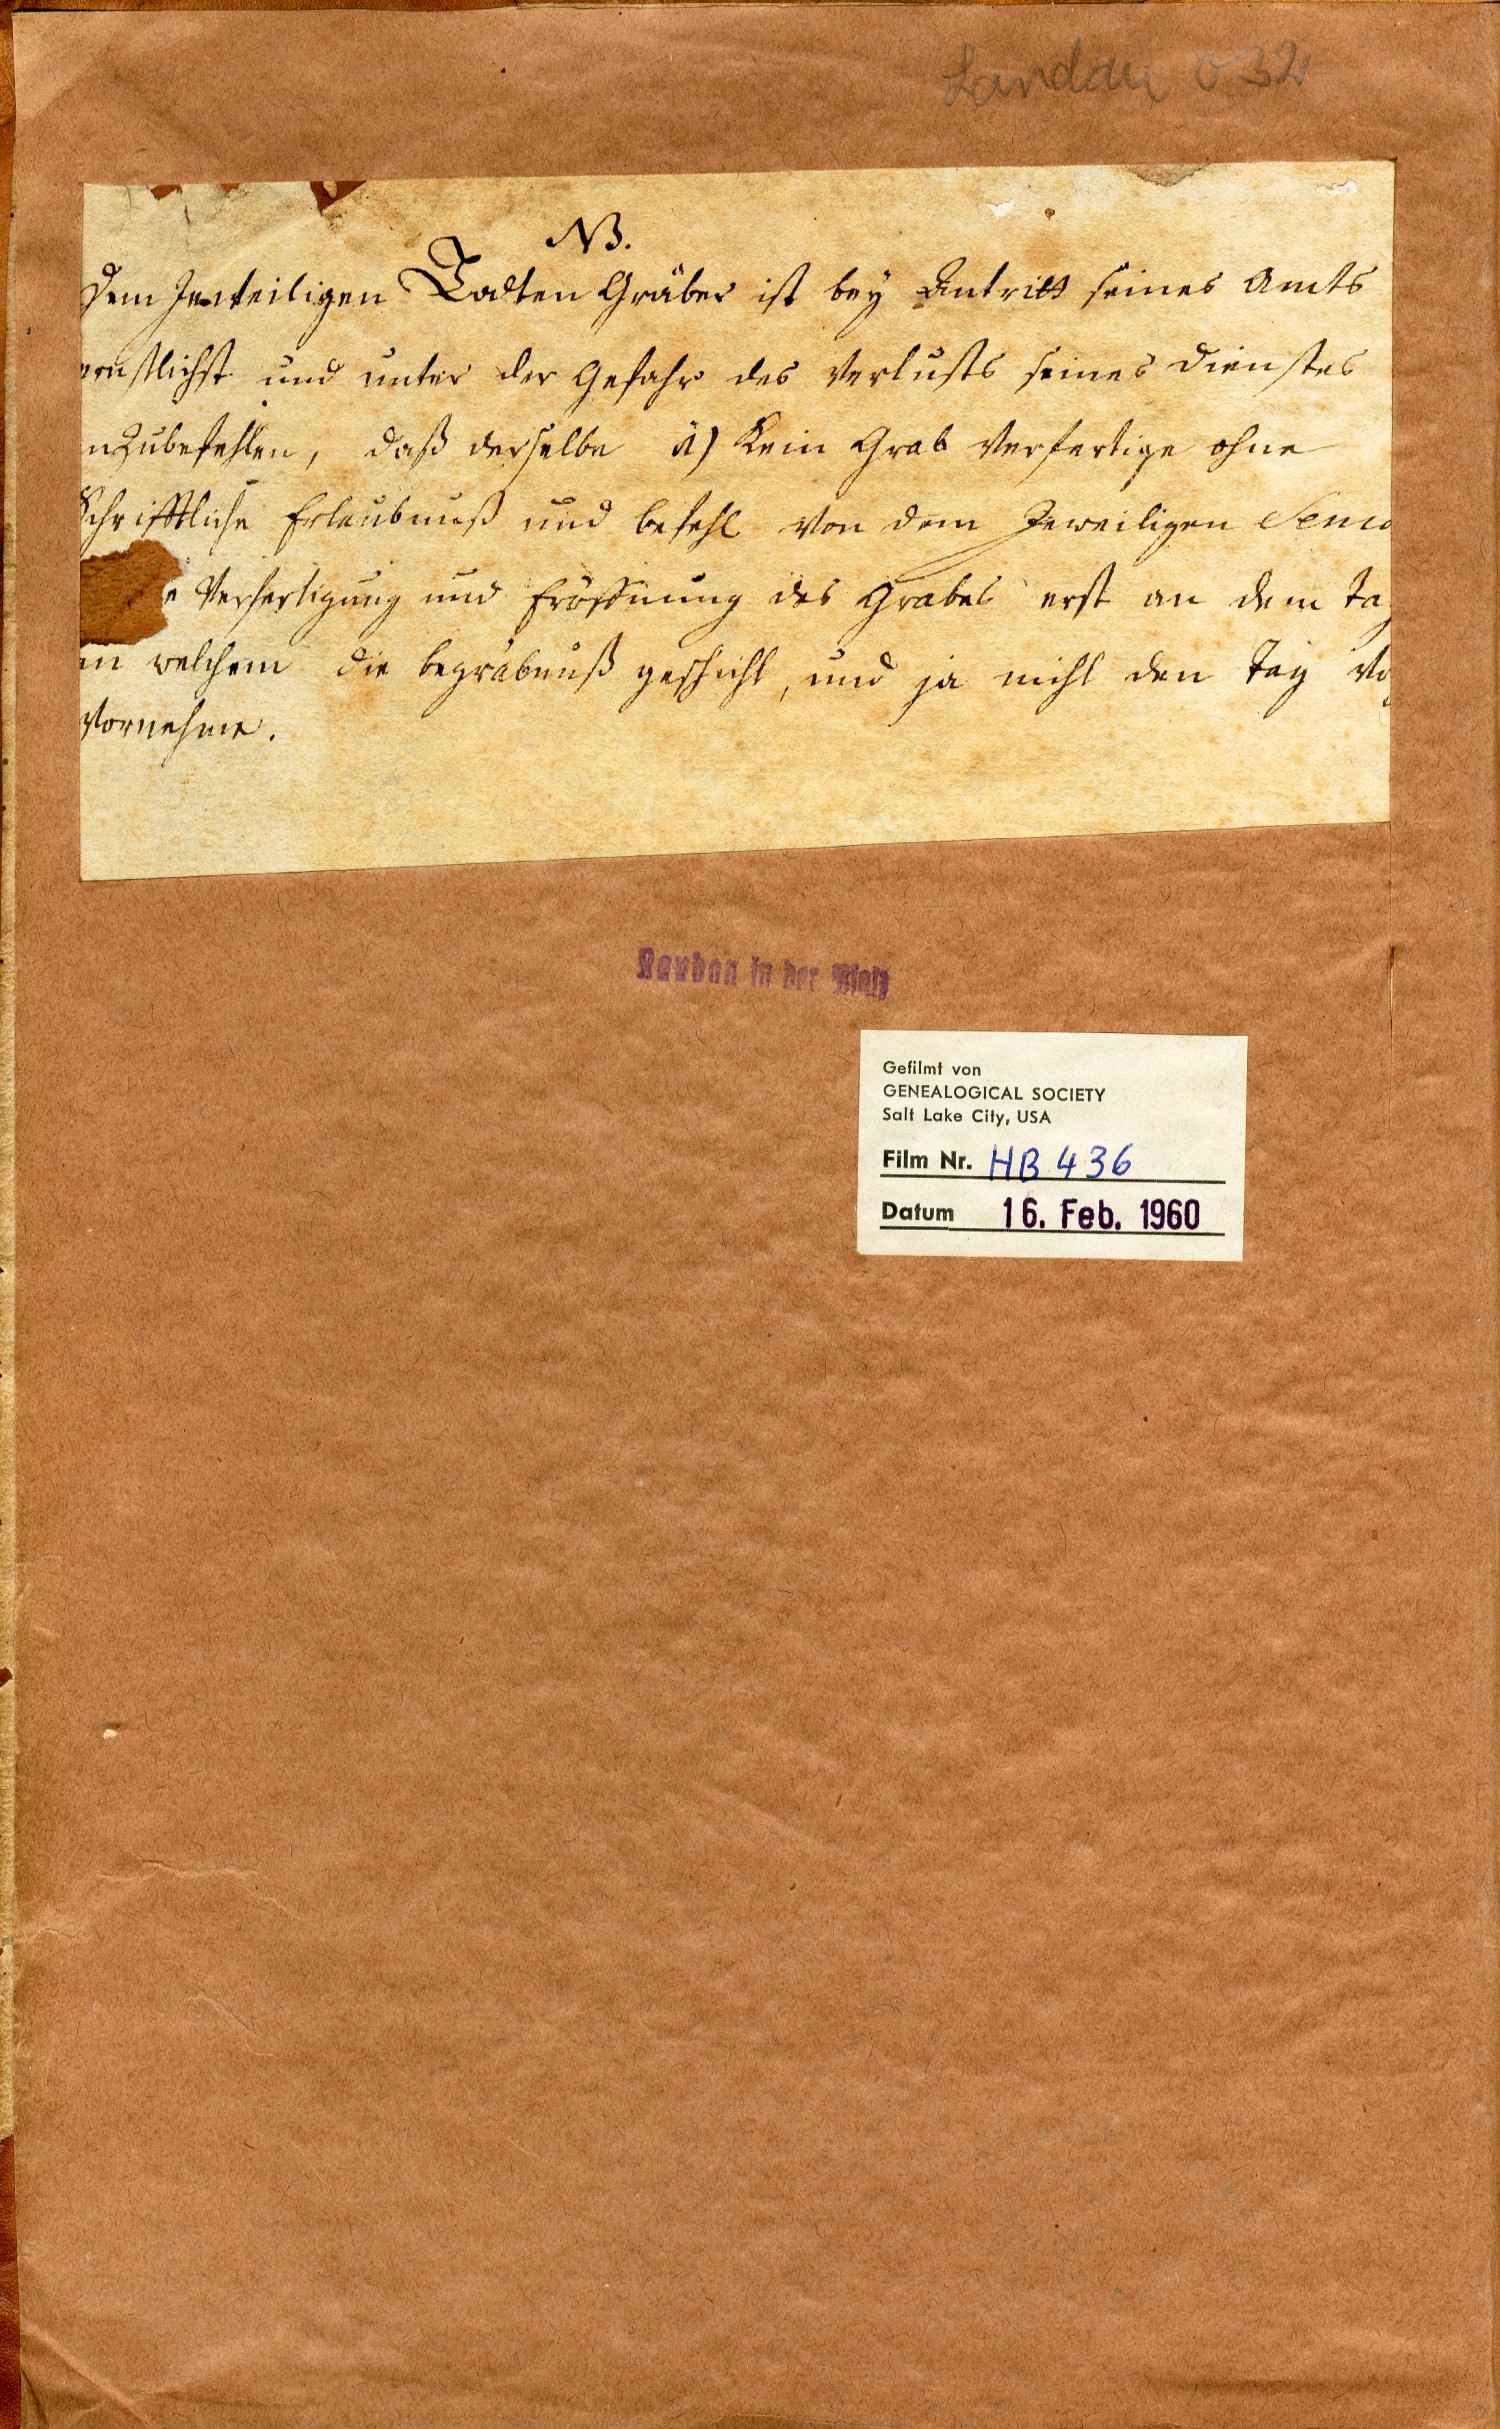 Landau 032
NB.
Dem Jeweiligen Todten Gräber ist bey Antritt seines Amts
ernstlichst und unter der Gefahr des Verlusts seines Dienstes
nzubefehlen, daß derselbe 1) Kein Grab Verfertige ohne
Schrifftliche Erlaubnuß und befehl von dem Jeweiligen Senio
e Verfertigung und Eröffnung des Grabes erst an dem Tag
an welchem die begräbnuß geschicht, und ja nicht den Tag vo
Vornehme.
Landau in der Pfalz
Gefilmt von
GENEALOGICAL SOCIETY
Salt Lake City, USA
Film Nr. HB 436
Datum 16. Feb. 1960